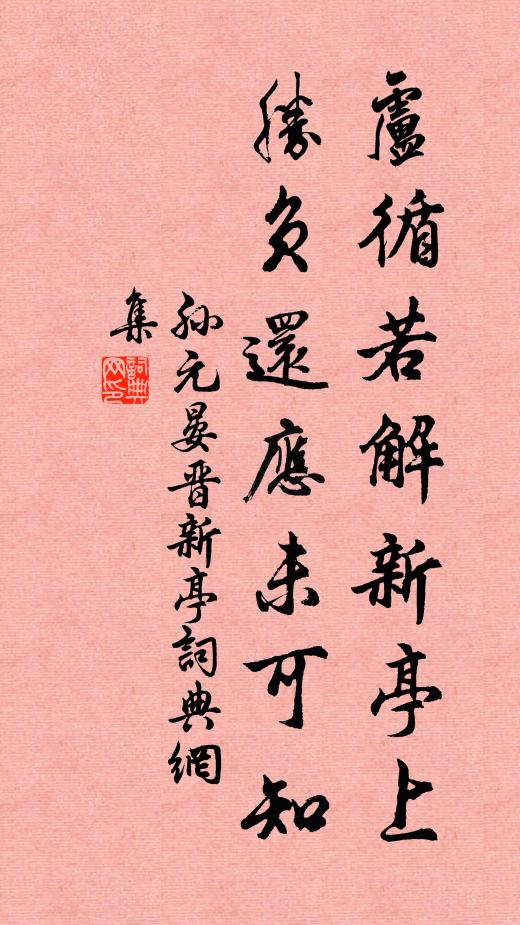 盧循若解新亭上
勝負還應未可知
孙元晏晋新亭詞典網
集
詞典
网印